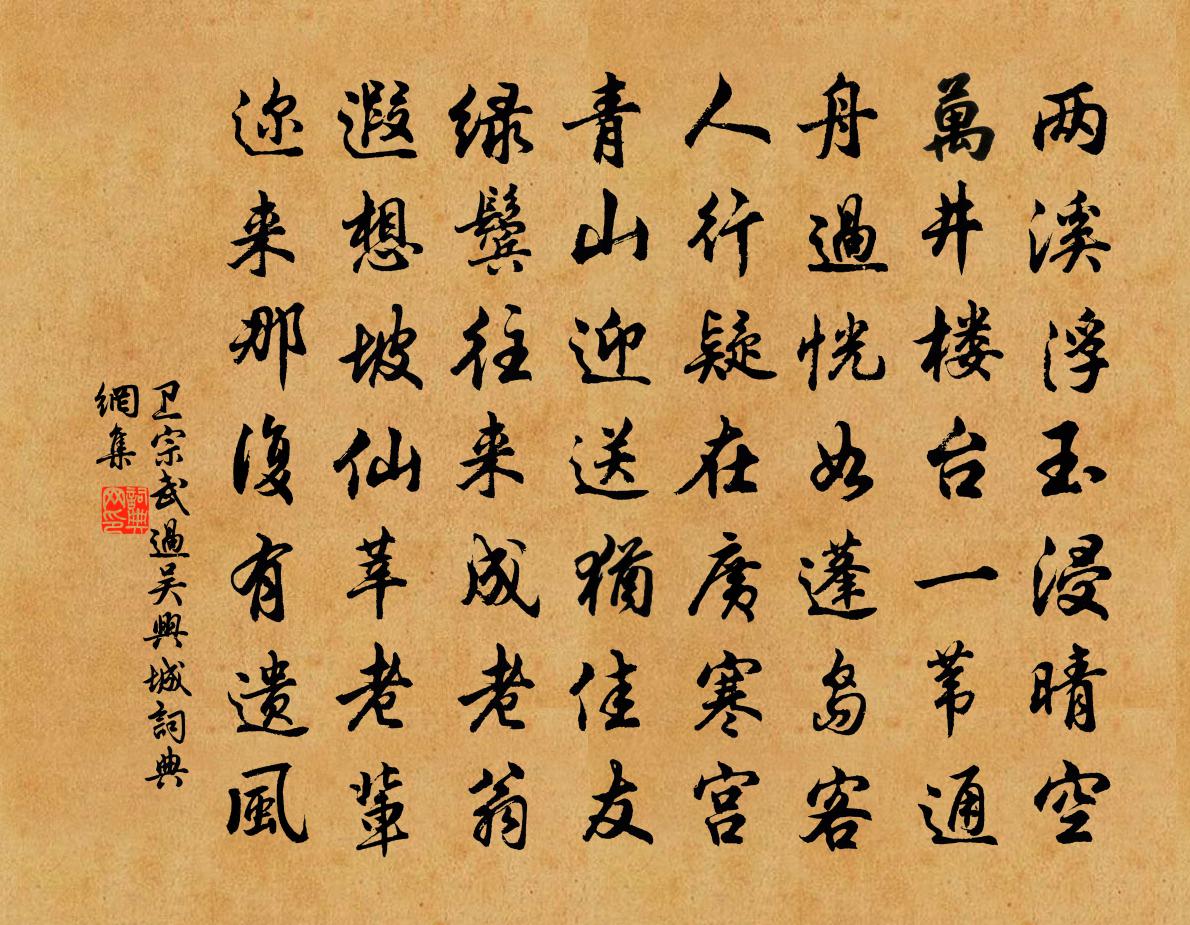 两溪浮玉浸晴空
萬井楼台一苇通
舟過恍如蓬岛客
人行疑在廣寒宫
青山迎送猶佳友
绿鬓往来成老翁
遐想坡仙莘老輩
迩来那復有遗風
卫宗武過吴興城詞典
網集
詞典
网印